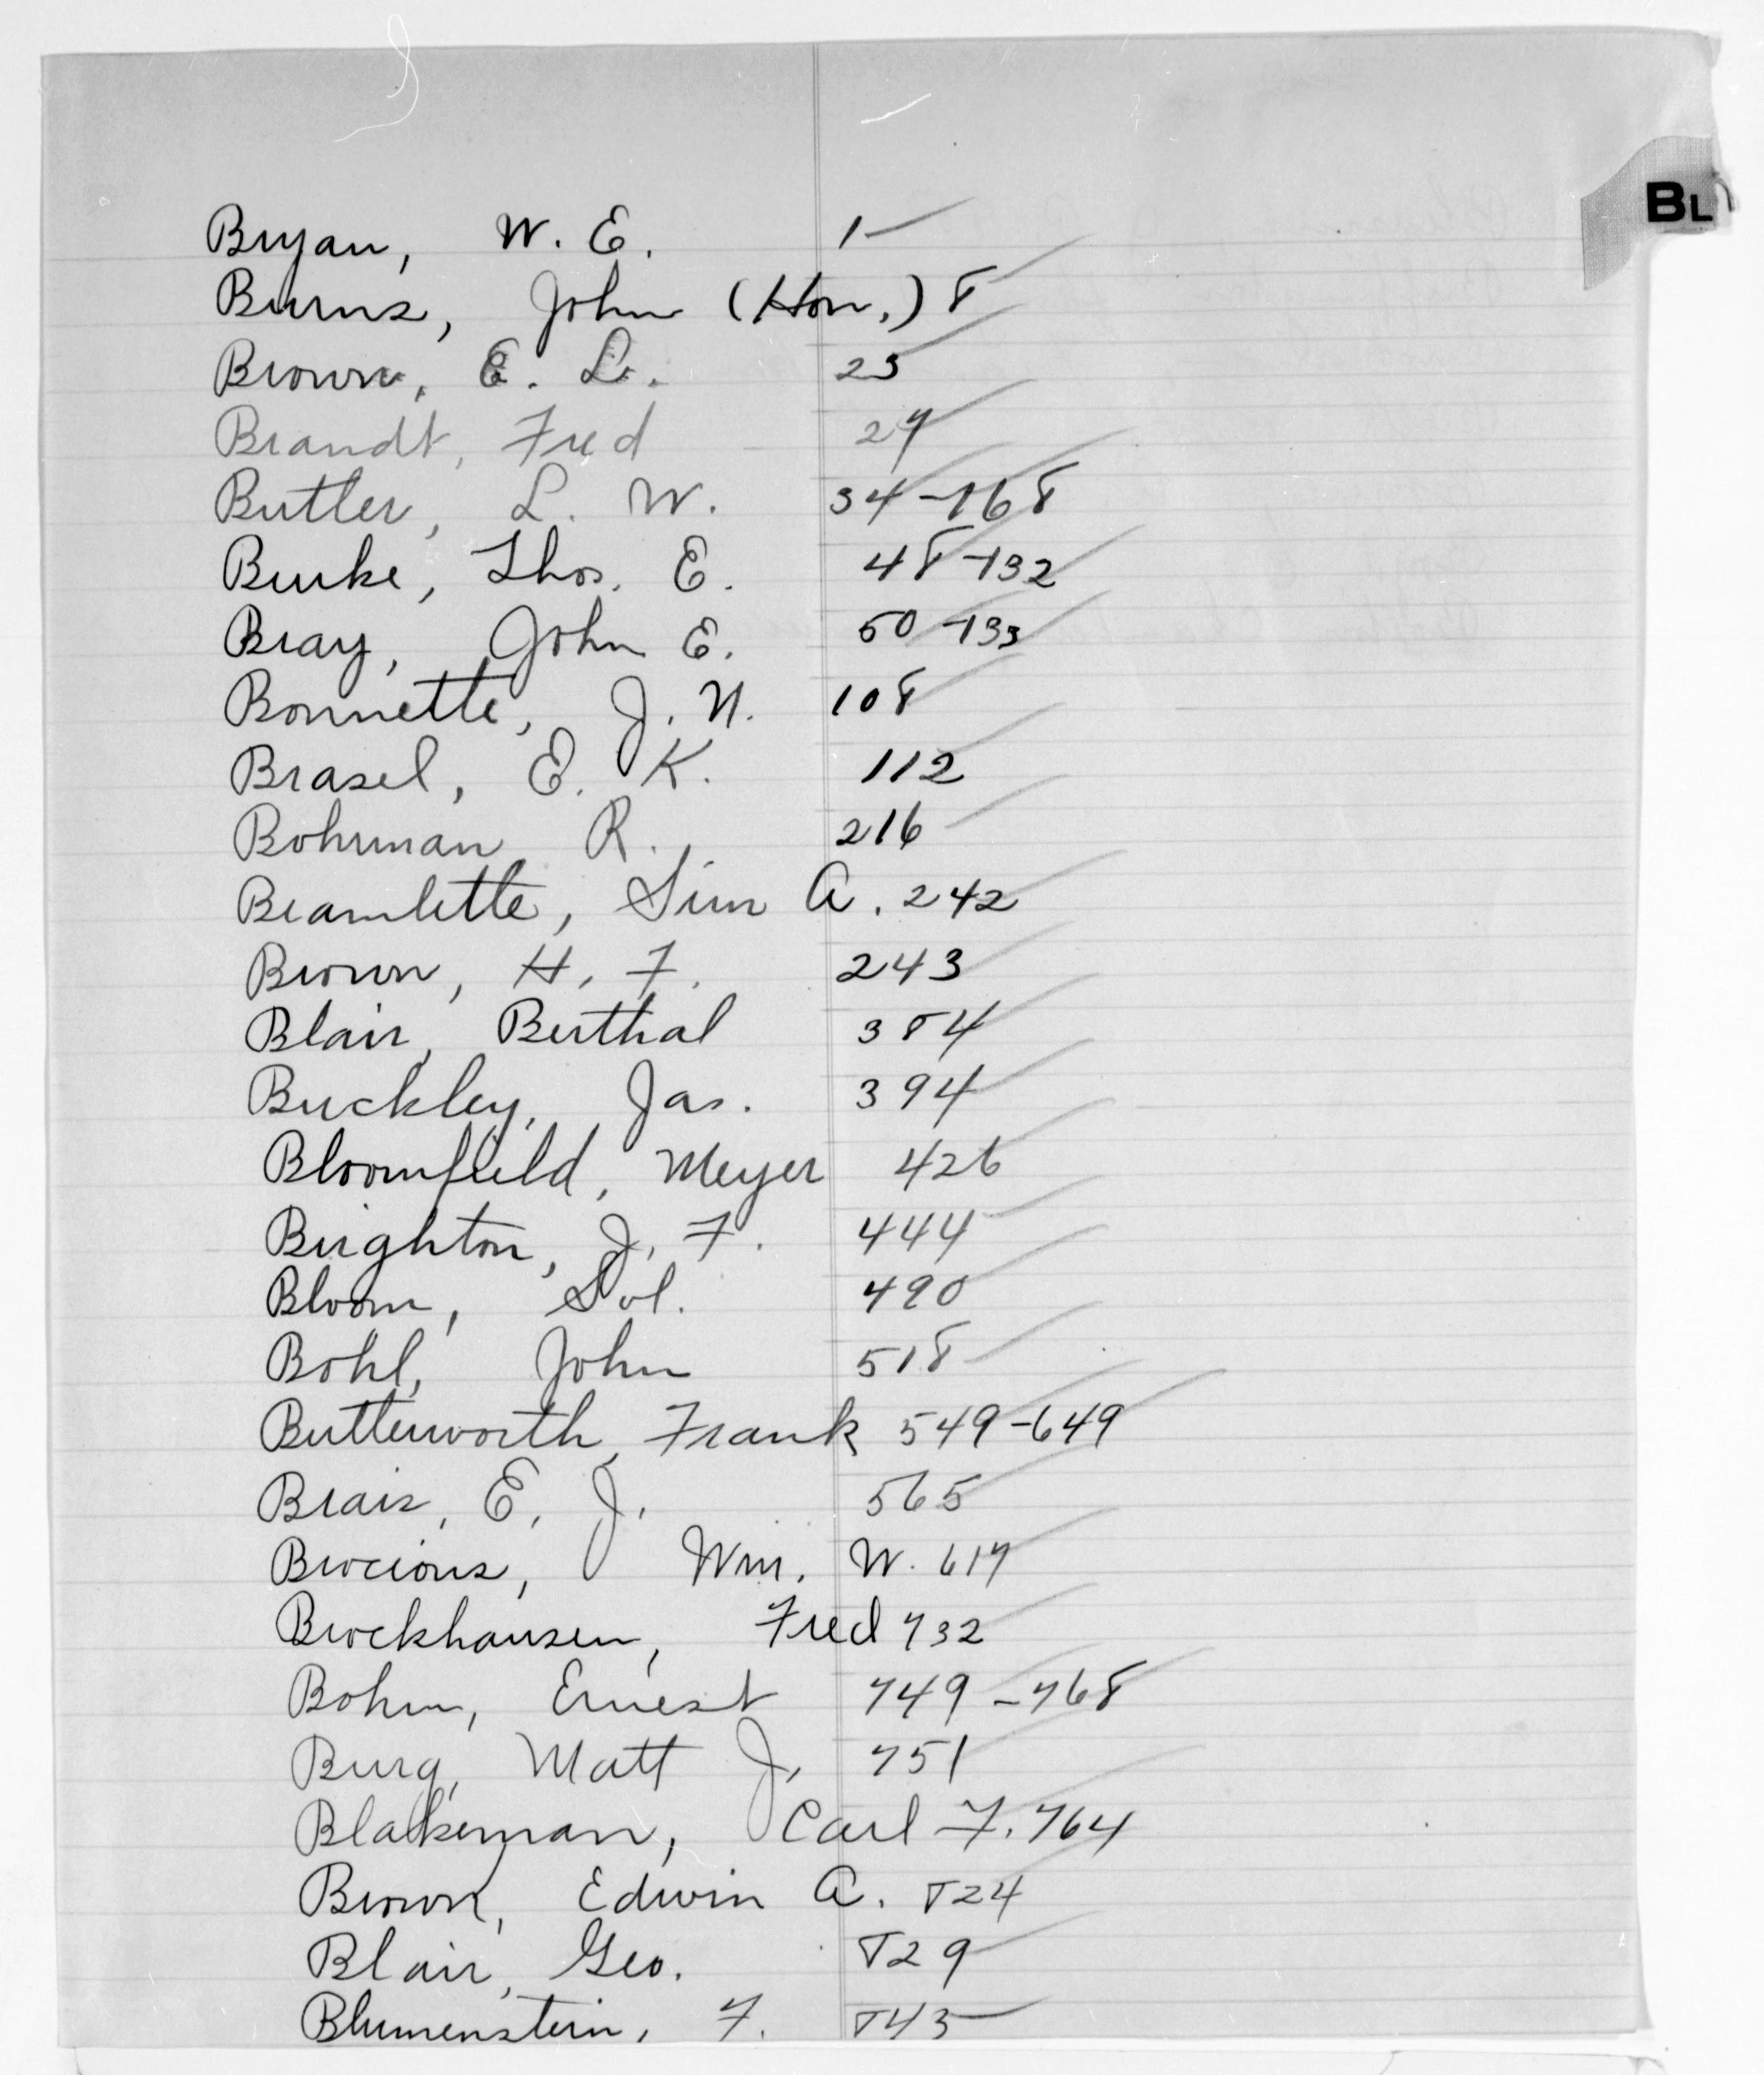 BL
Bryan, W. E. 1
Burns, John (Hon.) 8
Brown, E. L. 23
Brandt, Fred 27
Butler, L. W. 34-768
Burke, Thos. E. 48-132
Bray, John E. 50-133
Bonnette, J. N. 108
Brasel, E. K. 112
Bohrman R. 216
Bramlette, Sim A. 242
Brown, H. F. 243
Blair, Berthal 384
Buckley, Jas. 394
Bloomfield, Meyer 426
Brighton, J. F. 444
Bloom, Sol. 490
Bohl, John 518
Butterworth, Frank 549-649
Brais, E. J. 565
Brocious, Wm. W. 617
Brockhausen, Fred 732
Bohm, Ernest 749-768
Burg, Matt J. 751
Blakeman, Carl F. 764
Brown, Edwin A. 824
Blair, Geo. 829
Blumenstein, F. 843